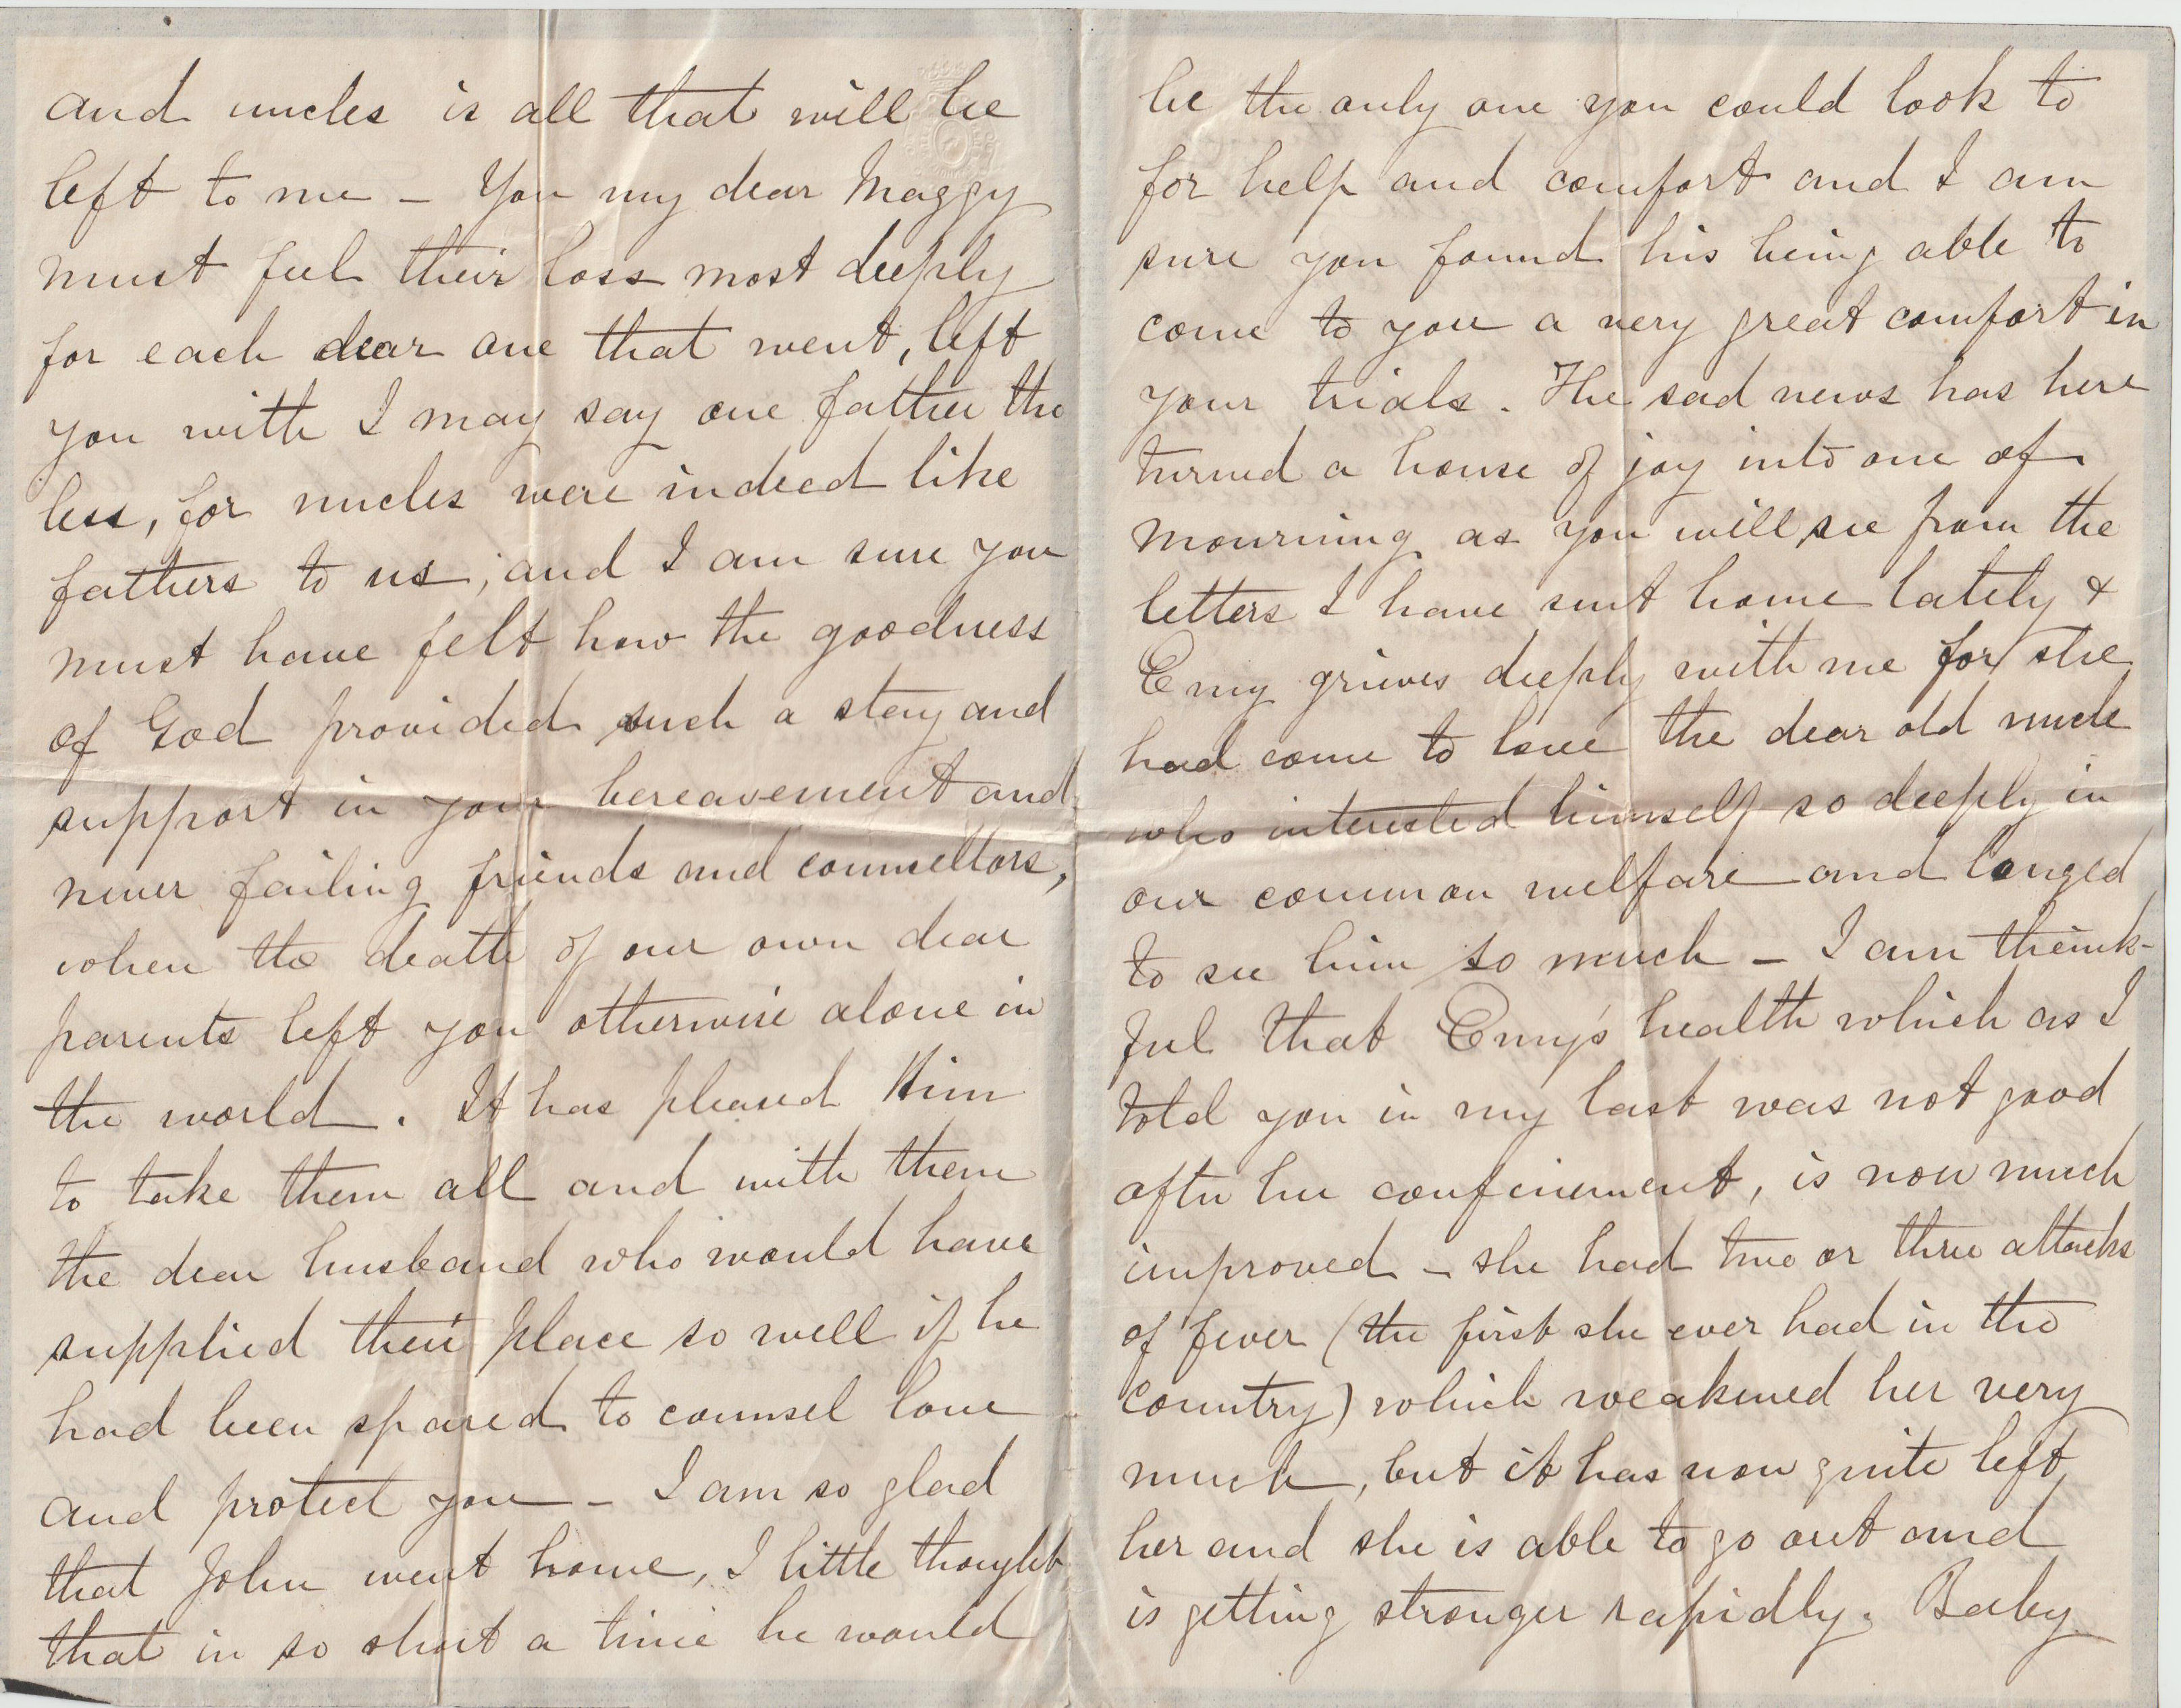 and uncles is all that will be
left to me – You my dear Maggy
must feel their loss most deeply
for each dear one that went, left
you with I may say one father the
less, for uncles were indeed like
fathers to us; and I am sure you
must have felt how the goodness
of God provided such a stay and
support in your bereavement and
never failing friends and counsellors,
when the death of our own dear
parents left you otherwise alone in
the world. It has pleased Him
to take them all and with them
the dear husband who would have
supplied their place so well if he
had been spared to counsel love
and protect you – I am so glad
that John went home, I little thought
that in so short a time he would
be the only one you could look to
for help and comfort and I am
sure you found his being able to
come to you a very great comfort in
your trials. The sad news has here
turned a house of joy into one of
mourning as you will see from the
letters I have sent home lately &
Emy grieves deeply with me for she
had come to love the dear old uncle
who interested himself so deeply in
our common welfare and longed
to see him so much – I am thank-
ful that Emy's health which as I
told you in my last was not good
after her confinement, is now much
improved – she had two or three attacks
of fever (the first she ever had in the
country) which weakened her very
much, but it has now quite left
her and she is able to go out and
is getting stronger rapidly. Baby